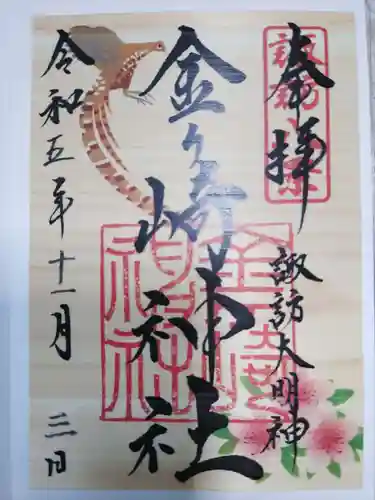 奉拝
諏訪大明神
金ヶ崎神社
金崎
神社
令和五年十一月三日